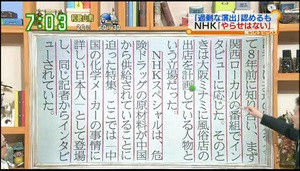 7:03
「過剰な演出」認めるも
NHK「やらせはない」
て８年前に知り合い、まず
関西ローカルの番組でイン
タビューに応じた。そのと
きは大阪ミナミに風俗店の
出店を計画している人物と
いう立場だった。
ＮＨＫスペシャルは、危
険ドラッグの原材料が中国
から供給されていることに
迫った特集。ここでは「中
国の化学メーカーの事情に
詳しい日本人」として登場
し、同じ記者からインタビ
ューされていた。